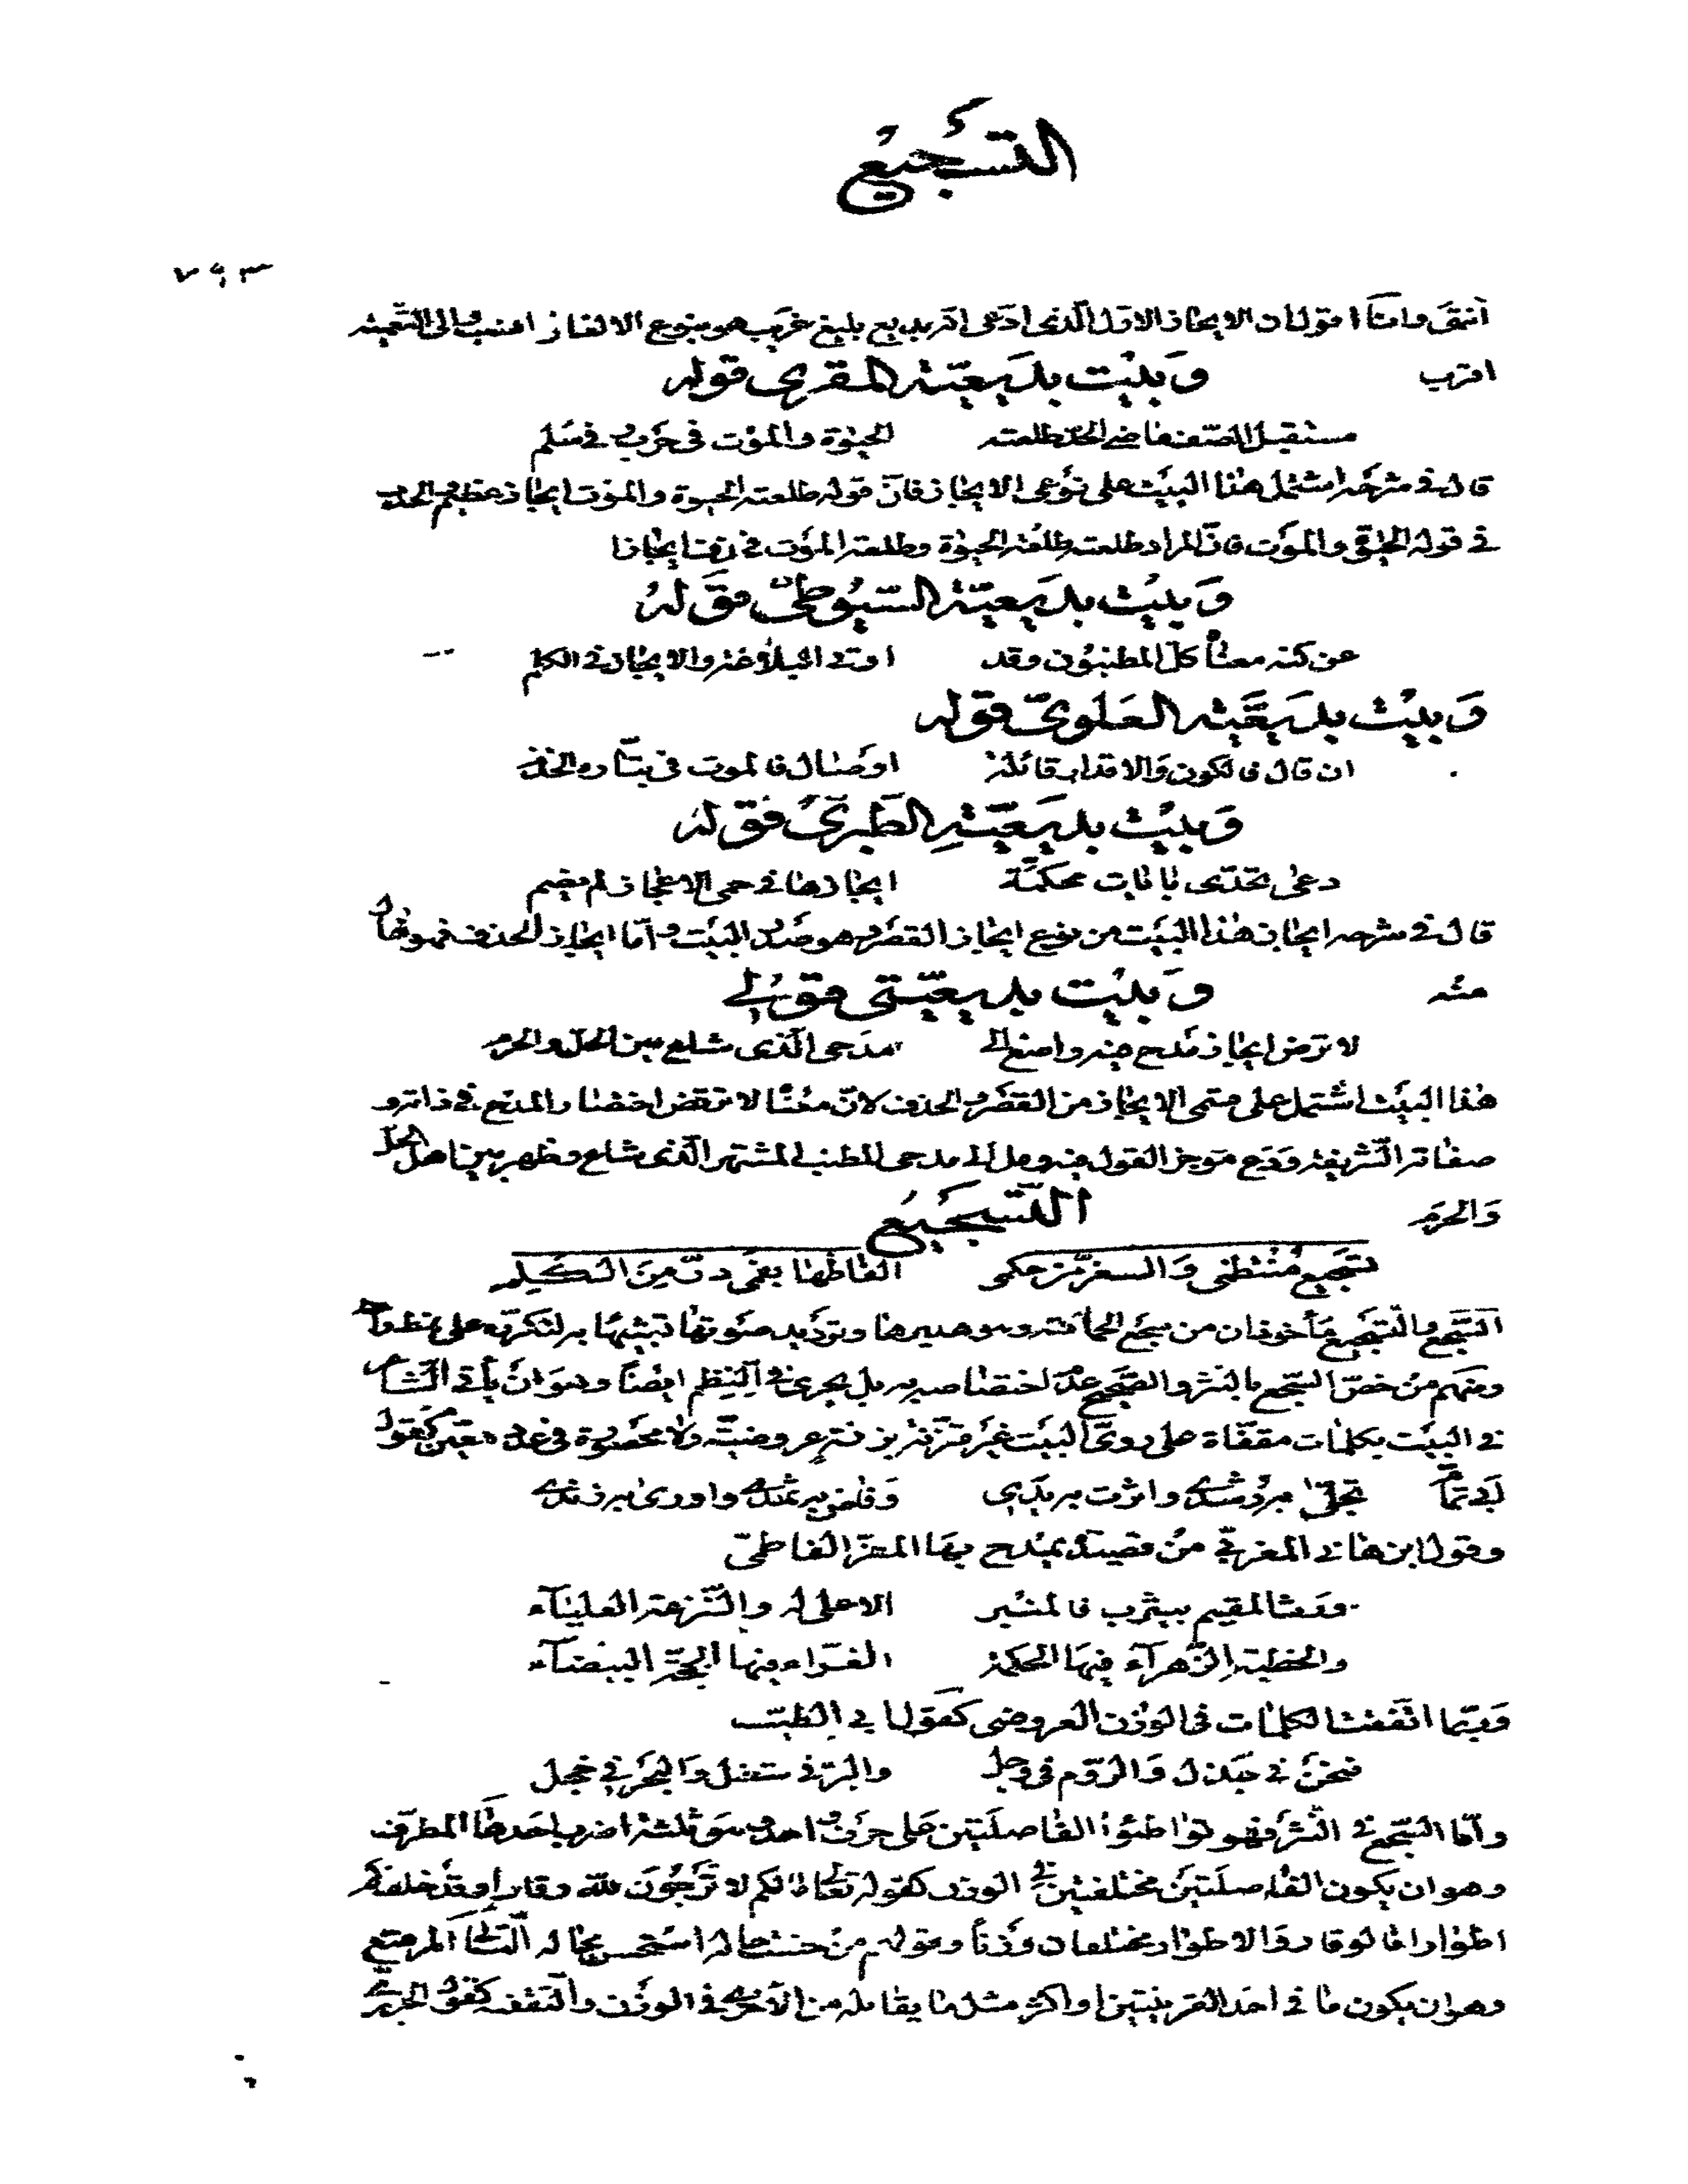 التسجيع
٧٩٣
انتهى وامّا اقول ان الايجاز الاوّل الّذى ادّعى انّه بديع بليغ غريب هو بنوع الالغاز انسب والى التعمية
اقرب
وبيت بديعيّة المقري قوله
مستقبل الصّف ماضى الحدّ طلعته الحيوة والموت فى حرب وفى سلم
قال فى شرحه اشتمل هذا البيت على نوعى الايجاز فانّ قوله طلعته الحيوة والموت ايجاز عظيم والحذف
فى قوله الحيوة والموت فانّ المراد طلعته طلعة الحيوة وطلعة الموت
وبيت بديعيّة السّيوطىّ قوله
عن كنه معناه كلّ المطنبون وقد اوتى البلاغة والايجاز فى الكلم
وبيت بديعيّة العلوىّ قوله
ان قال فالكون والاقدار قائلة اوصال فالموت فى
وبيت بديعيّة الطبرىّ فقوله
دعى تحدّى بايات محكمة ايجازها فى حمى الاعجاز لم يضم
قال فى شرحه ايجاز هذا البيت من نوع ايجاز القصر وهو صدر البيت وامّا ايجاز الحذف فهو
منه
وبيت بديعيّتى قولى
لا ترض ايجاز مدح فيه واصغ الى مدحى الّذى شاع بين الحلّ والحرم
هذا البيت اشتمل على قسمى الايجاز من القصر والحذف لانّ معناه لا ترتض اختصار المدح فى ذاته و
صفاته الشّريفة ودع موجز القول فيه ومل الى مدحى المطنب المشتهر الّذى شاع وظهر بين اهل الحلّ
والحرم
التسجيع
تسجيع منتظمى والسغر من حكمى الفاظها بفمى درّ من الكلم
السّجع والتسجيع مأخوذان من سجع الحمامة وهو هديرها وترديد صوتها تشبيها به لتكرّره على نمط واحد
ومنهم من خصّ السّجع بالنثر والصّحيح عدم اختصاصه به بل يجرى فى النظم ايضا وهو ان يأتى الشاعر
فى البيت بكلمات مقفّاة على روىّ البيت غير متّزنة بزنة عروضيّة ولا محصورة فى عدد معيّن كقول
ابى تمّام تجلّى به رشدى واثرت به يدى وفاض به ثمدى واورى به زندى
وقول ابن هانى المغربى من قصيدة يمدح بها المعزّ الفاطمىّ
ودعت المقيم بيثرب فالمنبر الاعلى له والتّرعة العلياء
والخطبة الزّهراء فيها الحكمة الغرّاء فيها الحجّة البيضاء
وربّما اتّفقت الكلمات فى الوزن العروضى كقول ابى الطيّب
فنحن فى جذل والرّوم فى وجل والبرّ فى شغل والبحر فى خجل
وامّا السّجع فى النّثر فهو تواطئو الفاصلتين على حرف واحد وهو ثلثة اضرب احدها المطرّف
وهو ان يكون الفاصلتين مختلفتين فى الوزن كقوله تعالى مالكم لا ترجون للّه وقارا وقد خلقكم
اطوارا فالوقار والاطوار مختلفان وزنا وقولهم من حسنت حاله استحسن محاله الثانى المرصّع
وهو ان يكون ما فى احد القرينتين او اكثره مثل ما يقابله من الاخرى فى الوزن والتقفية كقول الحريرى